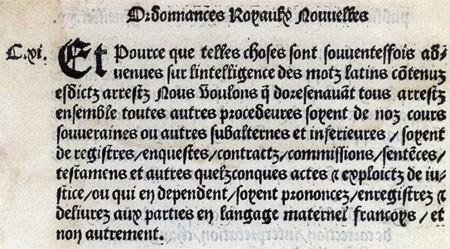 Ordonnances Royaulx Nouvelles
C.xi. Et Pource que telles choses sont souuenteffois ad⸗
uenues sur lintelligence des motz latins cõtenuz
esdictz arrestz Nous voulons q̃ doresenauãt tous arrestz
ensemble toutes autres procedeures soyent de noz cours
souueraines ou autres subalternes et inferieures / soyent
de registres / enquestes / contractz / commissions / sentẽces /
testamens et autres quelzconques actes ⁊ exploictz de iu⸗
stice / ou qui en dependent / soyent prononcez / enregistrez ⁊
deliurez aux parties en langage maternel francoys / et
non autrement.